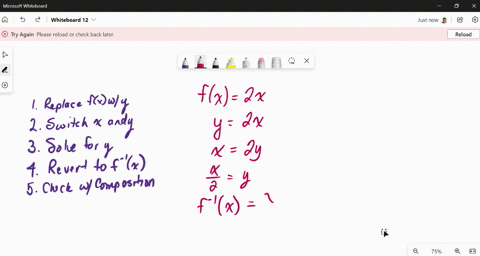 Microsoft Whiteboard
Whiteboard 12
Just now
Try Again Please reload or check back later.
Reload
1. Replace f(x) w/ y
2. Switch x and y
3. Solve for y
4. Revert to f⁻¹(x)
5. Check w/ Composition
f(x) = 2x
y = 2x
x = 2y
x/2 = y
f⁻¹(x) =
75%